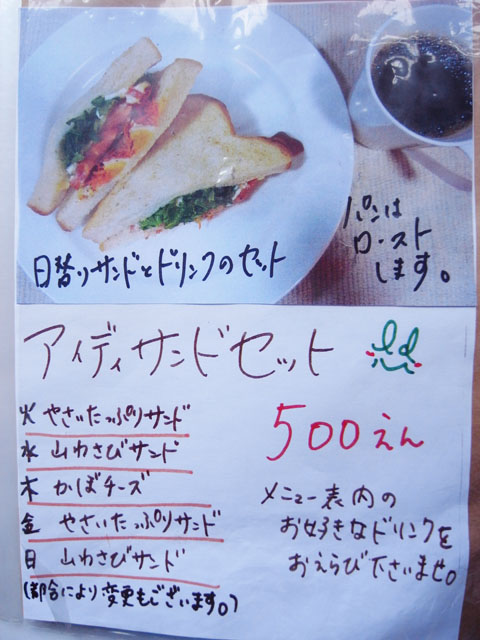 日替りサンドとドリンクのセット
パンは
ロースト
します。
アイディサンドセット
火 やさいたっぷりサンド
水 山わさびサンド
木 かぼチーズ
金 やさいたっぷりサンド
日 山わさびサンド
(都合により変更もございます。)
500えん
メニュー表内の
お好きなドリンクを
おえらび下さいませ。